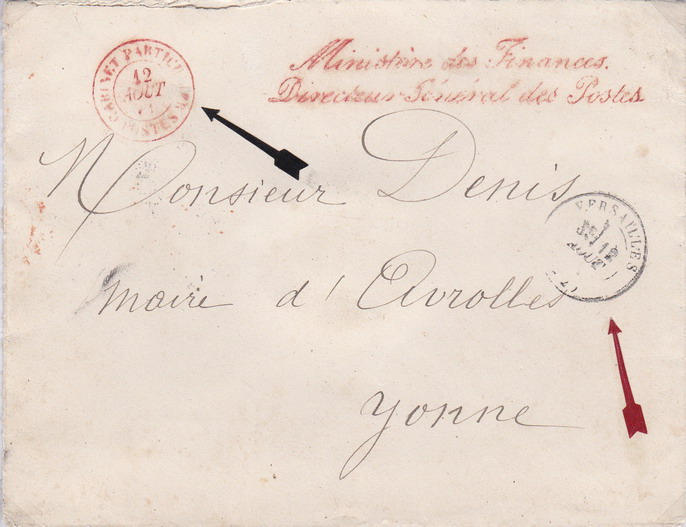 CABINET PARTICULIER
12
AOUT
71
POSTES
Ministère des Finances.
Directeur Général des Postes
Monsieur Denis
VERSAILLES
12
AOUT
maire d'Avrolles
Yonne